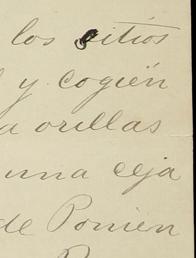 los sitios
y cogién
a orillas
una ceja
de Ponien